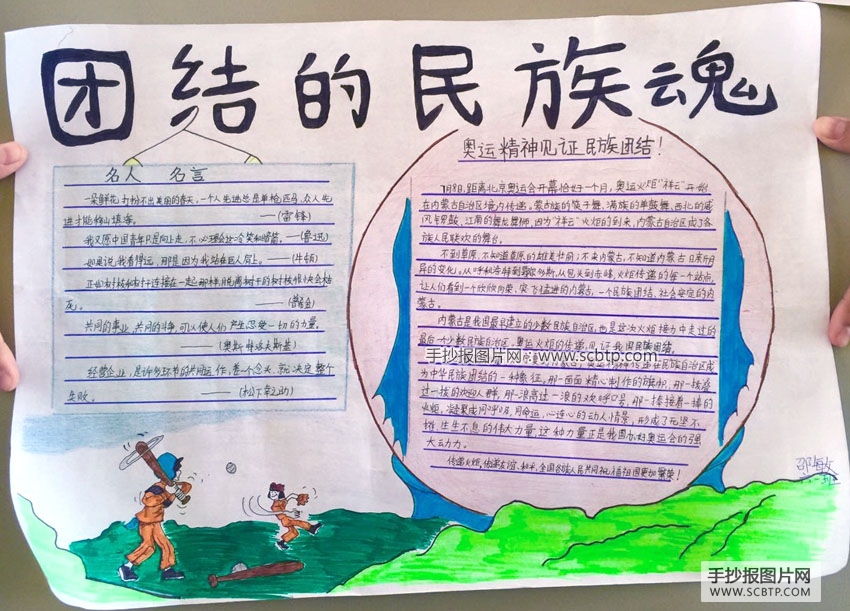 团结的民族云魂
名人 名言
一朵鲜花打扮不出美丽的春天，一个人先进总是单枪匹马，众人先
进才能移山填海。 ——（雷锋）
我又愿中国青年只是向上走，不必理会这冷笑和暗箭。——（鲁迅）
如果说我看得远，那是因为我站在巨人肩上。——（牛顿）
正如树枝和树干连接在一起那样，脱离树干的树枝很快会枯
死。
共同的事业，共同的斗争，可以使人们产生忍受一切的力量。
——（奥斯特洛夫斯基）
经营企业，是许多环节的共同运作，差一个念头，就决定整个
失败。 ——（松下幸之助）
奥运精神见证民族团结！
7月8日，距离北京奥运会开幕恰好一个月，奥运火炬“祥云”开始
在内蒙古自治区境内传递。蒙古族的筷子舞、满族的单鼓舞、西北的威
风锣鼓、江南的舞龙舞狮，因为“祥云”火炬的到来，内蒙古自治区成了各
族人民联欢的舞台。
不到草原，不知道草原的雄美壮丽；不来内蒙古，不知道内蒙古日新月
异的变化。从呼和浩特到鄂尔多斯，从包头到赤峰，火炬传递的每一个站点，
让人们看到一个欣欣向荣、突飞猛进的内蒙古，一个民族团结、社会安定的内
蒙古。
内蒙古是我国最早建立的少数民族自治区，也是这次火炬接力中走过的
最后一个少数民族自治区，奥运火炬的传递，见证我国民族团结。
奥运精神传递在民族自治区成
为中华民族团结的一种象征。那一面面精心制作的旗帜，那一拨一
拨的欢迎人群，那一浪高过一浪的欢呼口号，那一棒接着一棒的
火炬，凝聚成同呼吸、同命运、心连心的动人情景，形成了无坚不
摧、生生不息的伟大力量，这种力量正是我国办好奥运会的强
大动力。
传递火炬，传递友谊、和平，全国各族人民共同祝福祖国更加繁荣！
邵敏
手抄报图片网：www.scbtp.com
手抄报图片网
WWW.SCBTP.COM